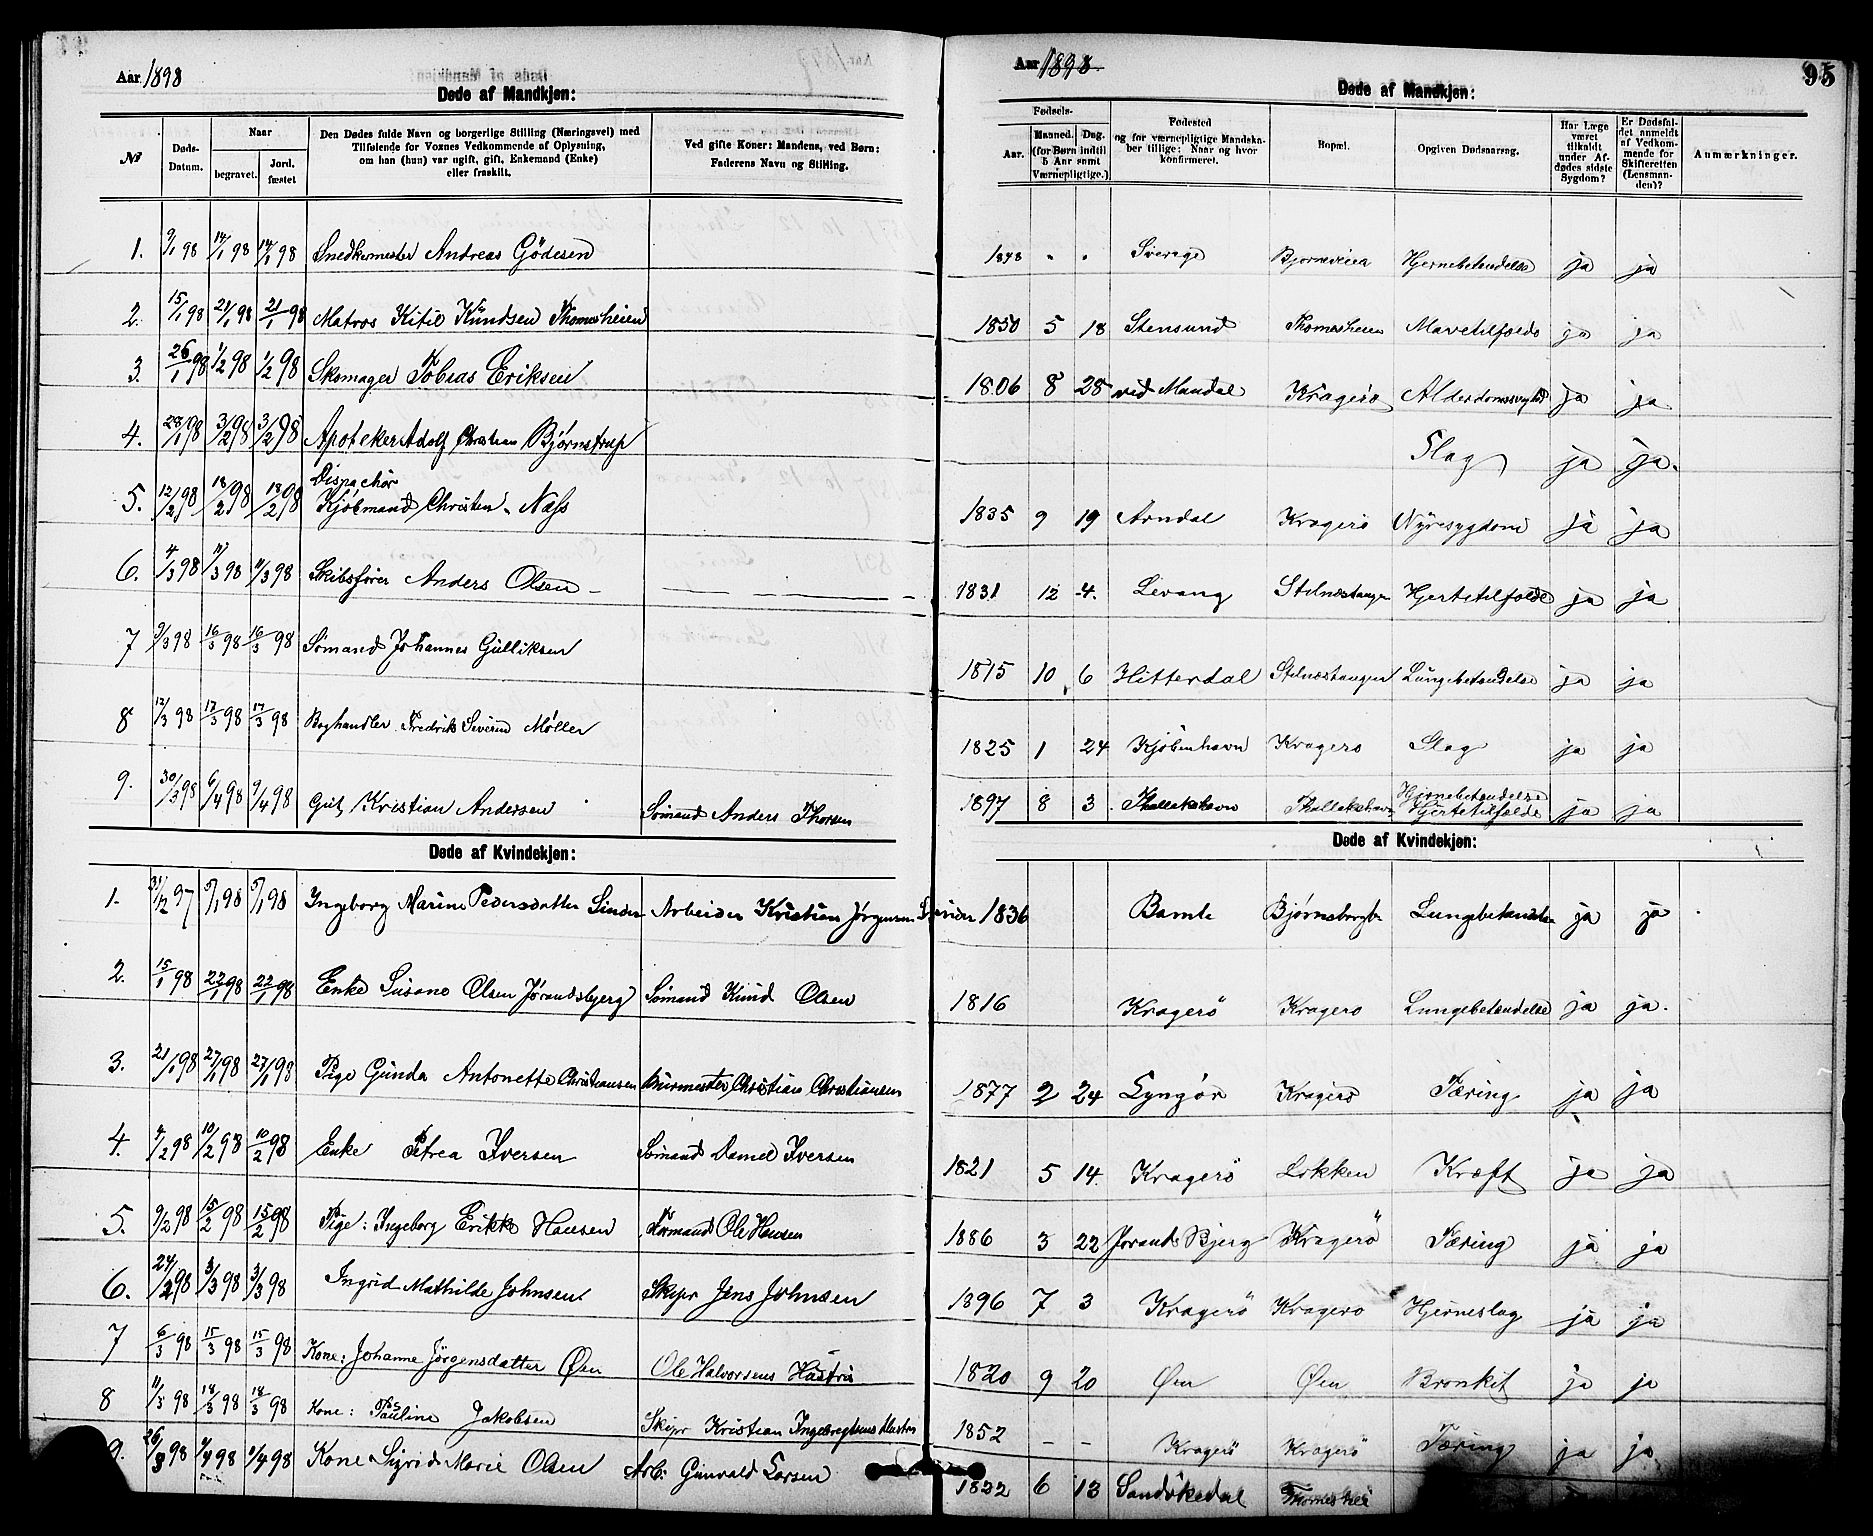 Aar 1898
Døde af Mandkjøn:
№
Døds-Datum.
Naar
begravet.
Jord. fæstet
Den Dødes fulde Navn og borgerlige Stilling (Næringsvei) med
Tilføiende for Voxnes Vedkommende af Oplysning,
om han (hun) var ugift, gift, Enkemand (Enke)
eller fraskilt.
Ved gifte Koner: Mandens, ved Børn:
Faderens Navn og Stilling.
1. 9/1 98 14/1 98 14/1 98 Snedkermester Andreas Gödesen
2. 15/1 98 21/1 98 21/1 98 Matros Kitil Knudsen Thomesheien
3. 26/1 98 1/2 98 1/2 98 Skomager Tobias Eriksen
4. 28/1 98 3/2 98 3/2 98 Apoteker Adolf Christian Bjørnstrup
Dispachør
5. 12/2 98 18/2 98 18/2 98 Kjöbmand Christen Næss
6. 4/3 98 11/3 98 11/3 98 Skibsfører Anders Olsen
7 9/3 98 16/3 98 16/3 98 Sømand Johannes Gulliksen
8 12/3 98 17/3 98 17/3 98 Boghandler Fredrik Severin Møller
9. 30/3 98 6/4 98 9/4 98 Gut Kristian Andersen Sømand Anders Thorsen
Døde af Kvindekjøn:
1. 31/12 97 5/1 98 5/1 98 Ingeborg Marine Pedersdatter Linder Arbeider Kristian Jørgensen
2. 15/1 98 22/1 98 22/1 98 Enke Susane Olsen Jørandsbjerg Sømand Knud Olsen
3. 21/1 98 27/1 98 27/1 98 Pige Gunda Antonette Christiansen Murmester Christian Christiansen
4. 4/2 98 10/2 98 10/2 98 Enke Petrea Iversen Sømand Daniel Iversen
5. 9/2 98 15/2 98 15/2 98 Pige: Ingeborg Erikke Hansen Formand Ole Hansen
6. 24/2 98 3/3 98 3/3 98 Ingrid Mathilde Johnsen Skipr Jens Johnsen
7 6/3 98 15/3 98 15/3 98 Kone: Johanne Jörgensdatter Øen Ole Halvorsens Hustru
8 11/3 98 18/3 98 18/3 98 Kone: Pauline Jakobsen Skipr Kristian Hustru
9. 26/3 98 1/4 98 1/4 98 Kone Sigrid Marie Olsen Arb: Gunvald Larsen
Aar 1898.
95
Døde af Mandkjøn:
Fødsels-
Aar.
Maaned. Dag.
(for Børn indtil
5 Aar samt
Værnepligtige.)
Fødested
og for værnepligtige Mandska-
ber tillige: Naar og hvor
konfirmeret.
Bopæl.
Opgiven Dødsaarsag.
Har Læge
været
tilkaldt
under Af-
dødes sidste
Sygdom?
Er Dødsfal-
det anmeldt
af Vedkom-
mende for
Skifteretten
(Lensman-
den)?
Anmærkninger.
1848 Sverige Hjernebetændelse ja ja
1850 5 18 Stensund Thomesheien Mavetilfælde ja ja
1806 8 28 ved Mandal Kragerø ja ja
Slag ja ja.
1835 9 19 Arndal Kragerø Nyresygdom ja ja
1831 12 4. Levang Stilnestangen Hjertetilfælde ja ja
1815 10 6 Hitterdal Stilnestangen Lungebetændelse ja ja
1825 1 24 Kjöbenhavn Kragerø Slag ja ja
1897 8 3 Thallakshavn Thallakshavn Hjernebetændelse Hjertetilfælde ja ja
Døde af Kvindekjøn:
1836 Bamle Bjørnsborgbr Lungebetændelse ja ja
1816 Kragerö Kragerø Lungebetændelse ja ja.
1877 2 24 Lyngör Kragerø Tæring ja ja
1821 5 14. Kragerö Lökken Kræft ja ja
1886 3 22 Jorands Bjerg Kragerö Tæring ja ja
1896 7 3 Kragerö Kragerø Hjerneslag ja ja
1820 9 20 Øen Øen Bronkit ja ja
1852 - - Kragerö Kragerö Tæring ja ja
1822 6 13 Sandökedal Thomeshei